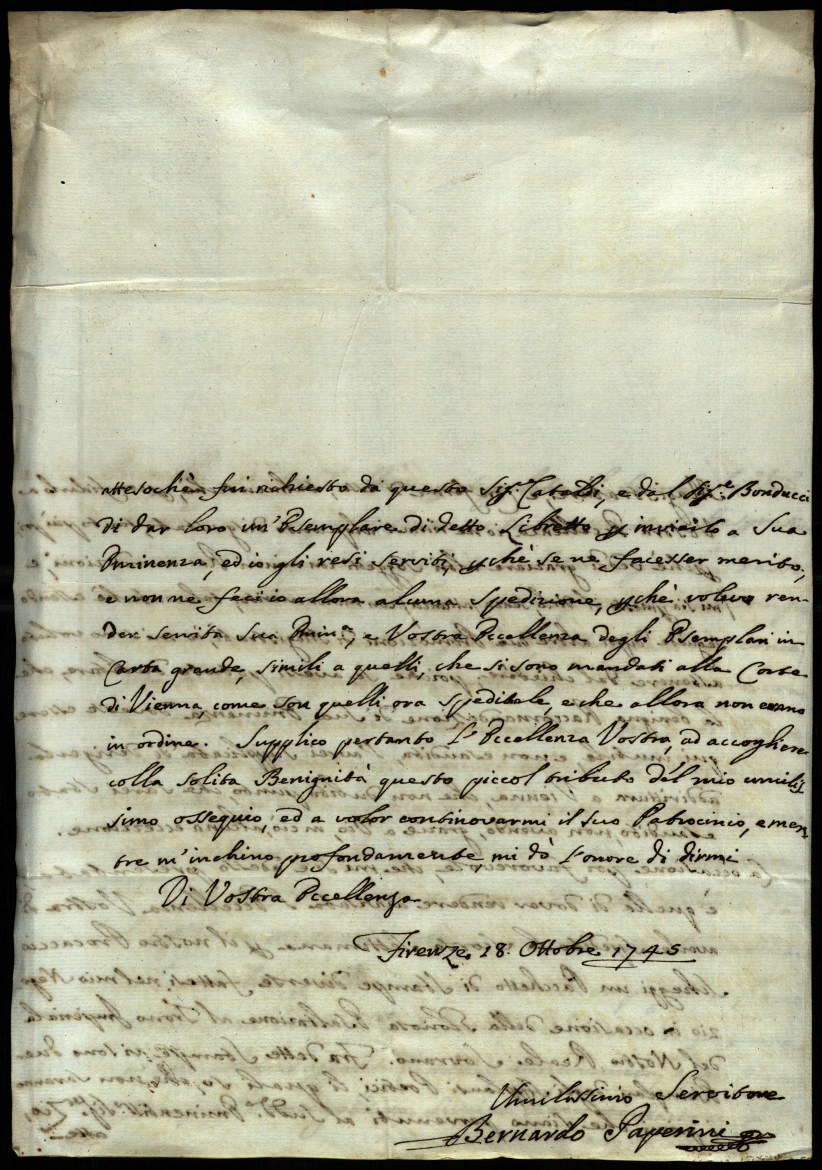 attesochè fui richiesto da questo Sig.r Cataldi, e dal Sig.e Bonducci
di dar loro un'Esemplare di detto Libretto p inviarlo a Sua
Eminenza, ed io gli resi serviti, pchè se ne facesser merito,
e non ne feci io allora alcuna spedizione, pchè volevo ren-
der servita Sua Emin.a, e Vostra Eccellenza degli Esemplari in
Carta grande, simili a quelli, che si sono mandati alla Corte
di Vienna, come son quelli ora speditele, e che allora non erano
in ordine. Supplico pertanto l'Eccellenza Vostra, ad accogliere
colla solita Benignità questo piccol tributo del mio umilis
simo ossequio, ed a voler continovarmi il suo Patrocinio, e men
tre m'inchino profondamente, mi dò l'onore di dirmi
Di Vostra Eccellenza
Firenze 18. Ottobre 1745
Umilissimo Servitore
Bernardo Paperini